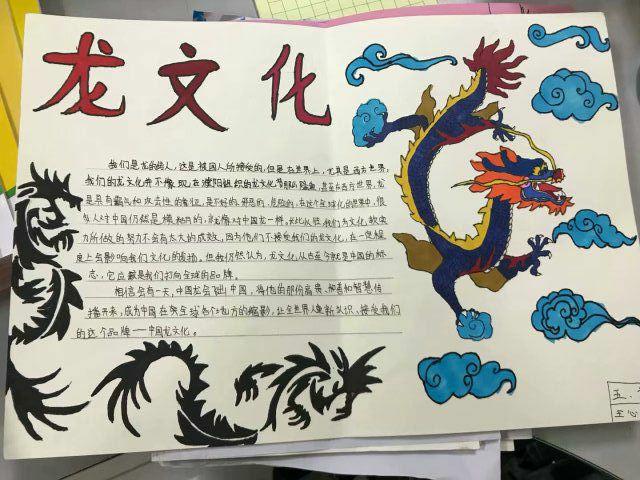 龙文化
我们是龙的传人，这是被国人所接受的，但是在世界上，尤其是西方世界，
我们的龙文化并不像
是具有霸气和攻击性的象征，是不好的，邪恶的，危险的，在这个全球化的世界中，很
多人对中国仍然是模糊的，就像对中国龙一样，长此以往我们为文化软实
力所做的努力不会有太大的成效，因为他们不接受我们的龙文化，在一定程
度上会影响我们文化的传播，但我仍然认为，龙文化从古至今就是中国的标
志，它应该是我们打向全球的品牌。
相信会有一天，中国龙会飞出中国，将他的那份高贵、和善和智慧传
播开来，成为中国在全球各个地方的缩影，让全世界人重新认识、接受我们
的这个品牌——中国龙文化。
五.
至心